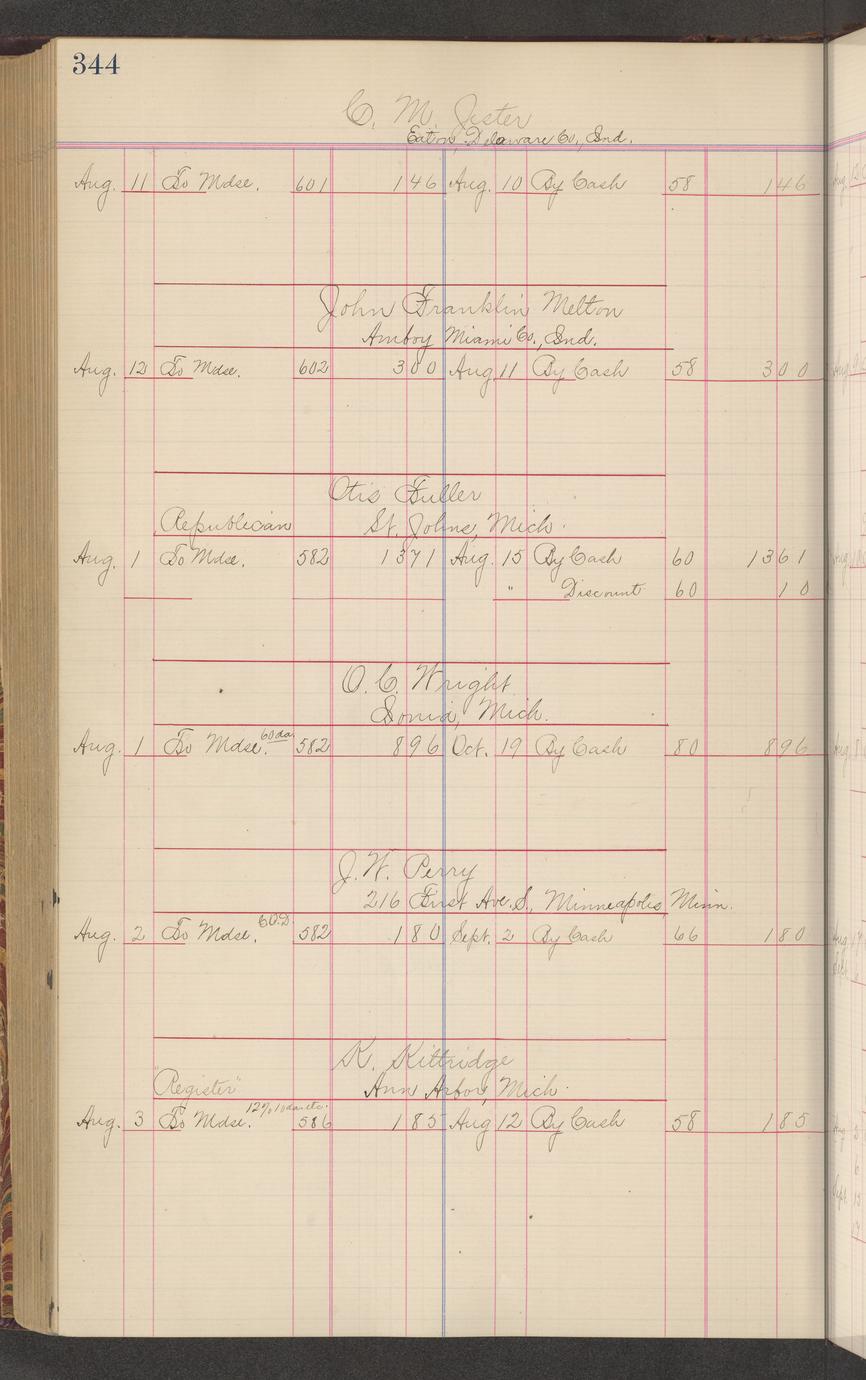 344
C. M. Jester
Eaton, Delaware Co., Ind.
Aug. 11 To Mdse. 601 146 Aug. 10 By Cash 58 146
John Franklin Melton
Amboy Miami Co., Ind.
Aug. 12 To Mdse. 602 300 Aug 11 By Cash 58 300
Otis Fuller
Republican St. Johns, Mich.
Aug. 1 To Mdse. 582 1371 Aug. 15 By Cash 60 1361
" Discount 60 10
O. C. Wright
Ionia, Mich.
Aug. 1 To Mdse. 60 da 582 896 Oct. 19 By Cash 80 896
J. W. Perry
216 First Ave. S., Minneapolis, Minn.
Aug. 2 To Mdse. 60 D. 582 180 Sept. 2 By Cash 66 180
K. Kittridge
"Register" Ann Arbor, Mich.
Aug. 3 To Mdse. 12% 10 da etc. 586 185 Aug 12 By Cash 58 185